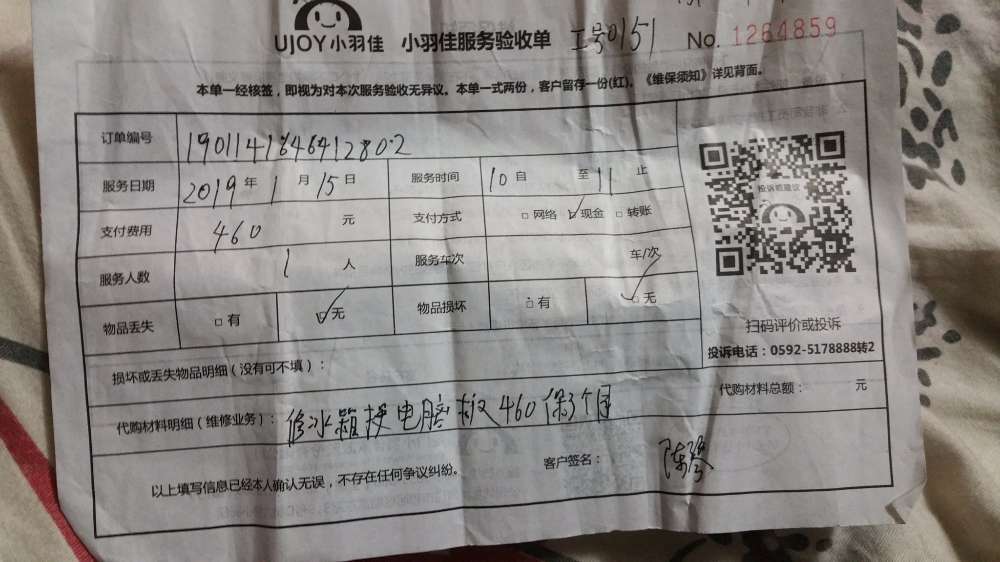 UJOY小羽佳 小羽佳服务验收单 工号0151 No. 1264859
本单一经核签，即视为对本次服务验收无异议。本单一式两份，客户留存一份(红)。《维保须知》详见背面。
订单编号 1901141846412802
服务日期 2019年1月15日 服务时间 10自 至11止
支付费用 460 元 支付方式 □网络 ☑现金 □转账
服务人数 1 人 服务车次 车/次
物品丢失 □有 ☑无 物品损坏 □有 ☑无
投诉或建议
扫码评价或投诉
投诉电话：0592-5178888转2
损坏或丢失物品明细（没有可不填）：
代购材料总额： 元
代购材料明细（维修业务）：修冰箱换电脑板460保3个月
以上填写信息已经本人确认无误，不存在任何争议纠纷。 客户签名：